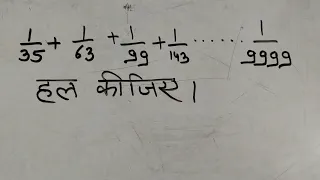 1/35 + 1/63 + 1/99 + 1/143 ...... 1/9999
हल कीजिए।